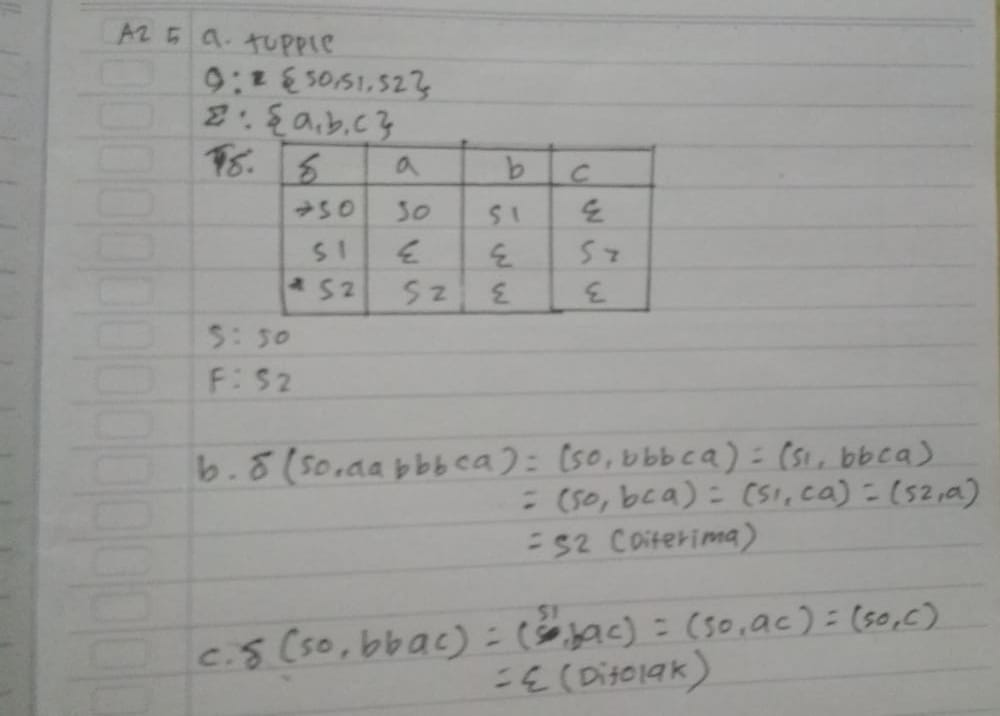 AZ 5 a. tupple
Q: = {S0,S1,S2}
Σ: {a,b,c}
δ. δ a b c
→S0 S0 S1 ε
S1 ε ε S2
* S2 S2 ε ε
S: S0
F: S2
b. δ (S0,aabbbca) = (S0,bbbca) = (S1, bbca)
= (S0, bca) = (S1, ca) = (S2,a)
= S2 (Diterima)
c. δ (S0, bbac) = (S1,bac) = (S0, ac) = (S0, c)
= ε (Ditolak)